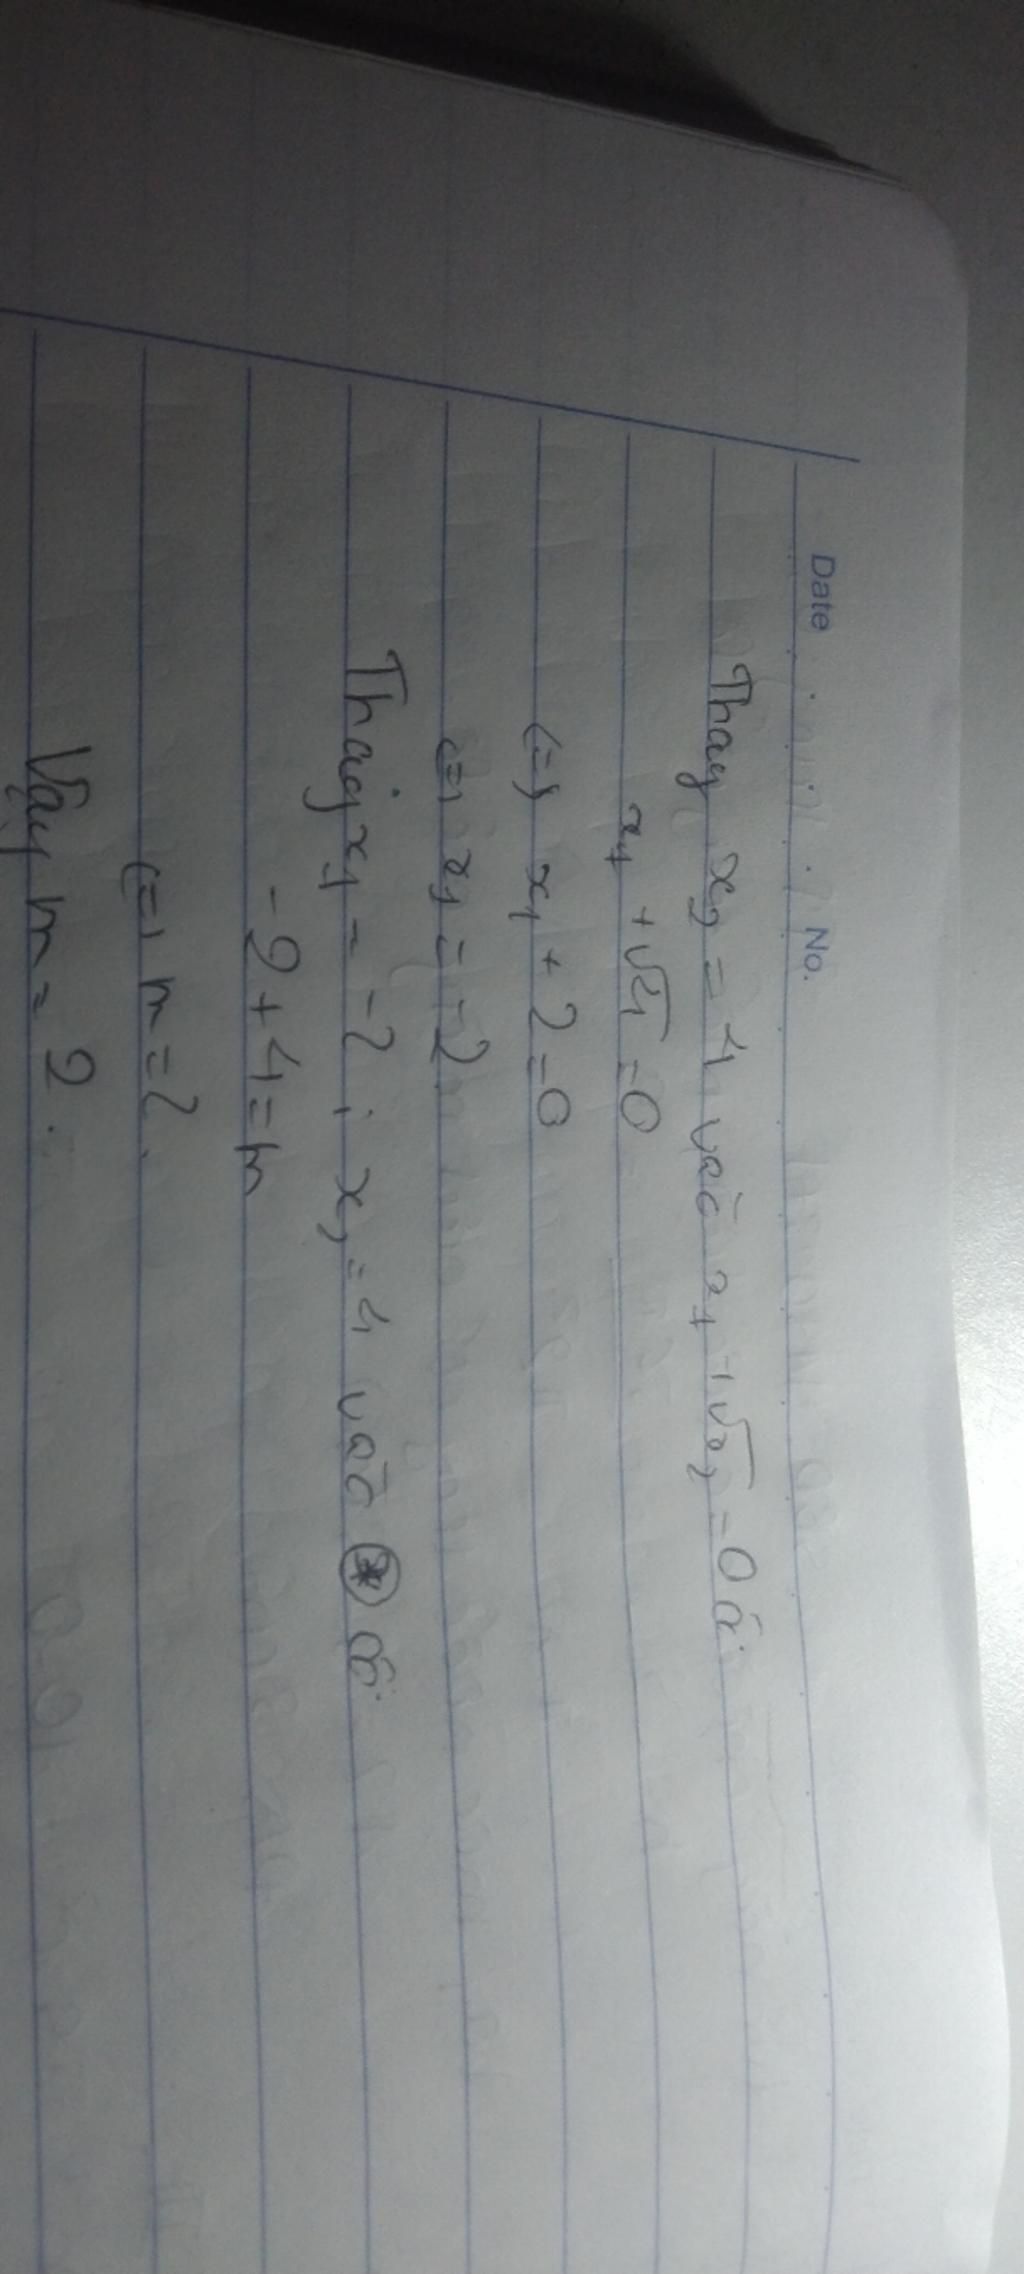 Date No.
Thay x₂ = 4 vào x₁ + √x₂ = 0 có:
x₁ + √4 = 0
(=) x₁ + 2 = 0
(=) x₁ = -2
Thay x₁ = -2 ; x₂ = 4 vào (*) có:
- 2 + 4 = m
(=) m = 2.
Vậy m = 2.